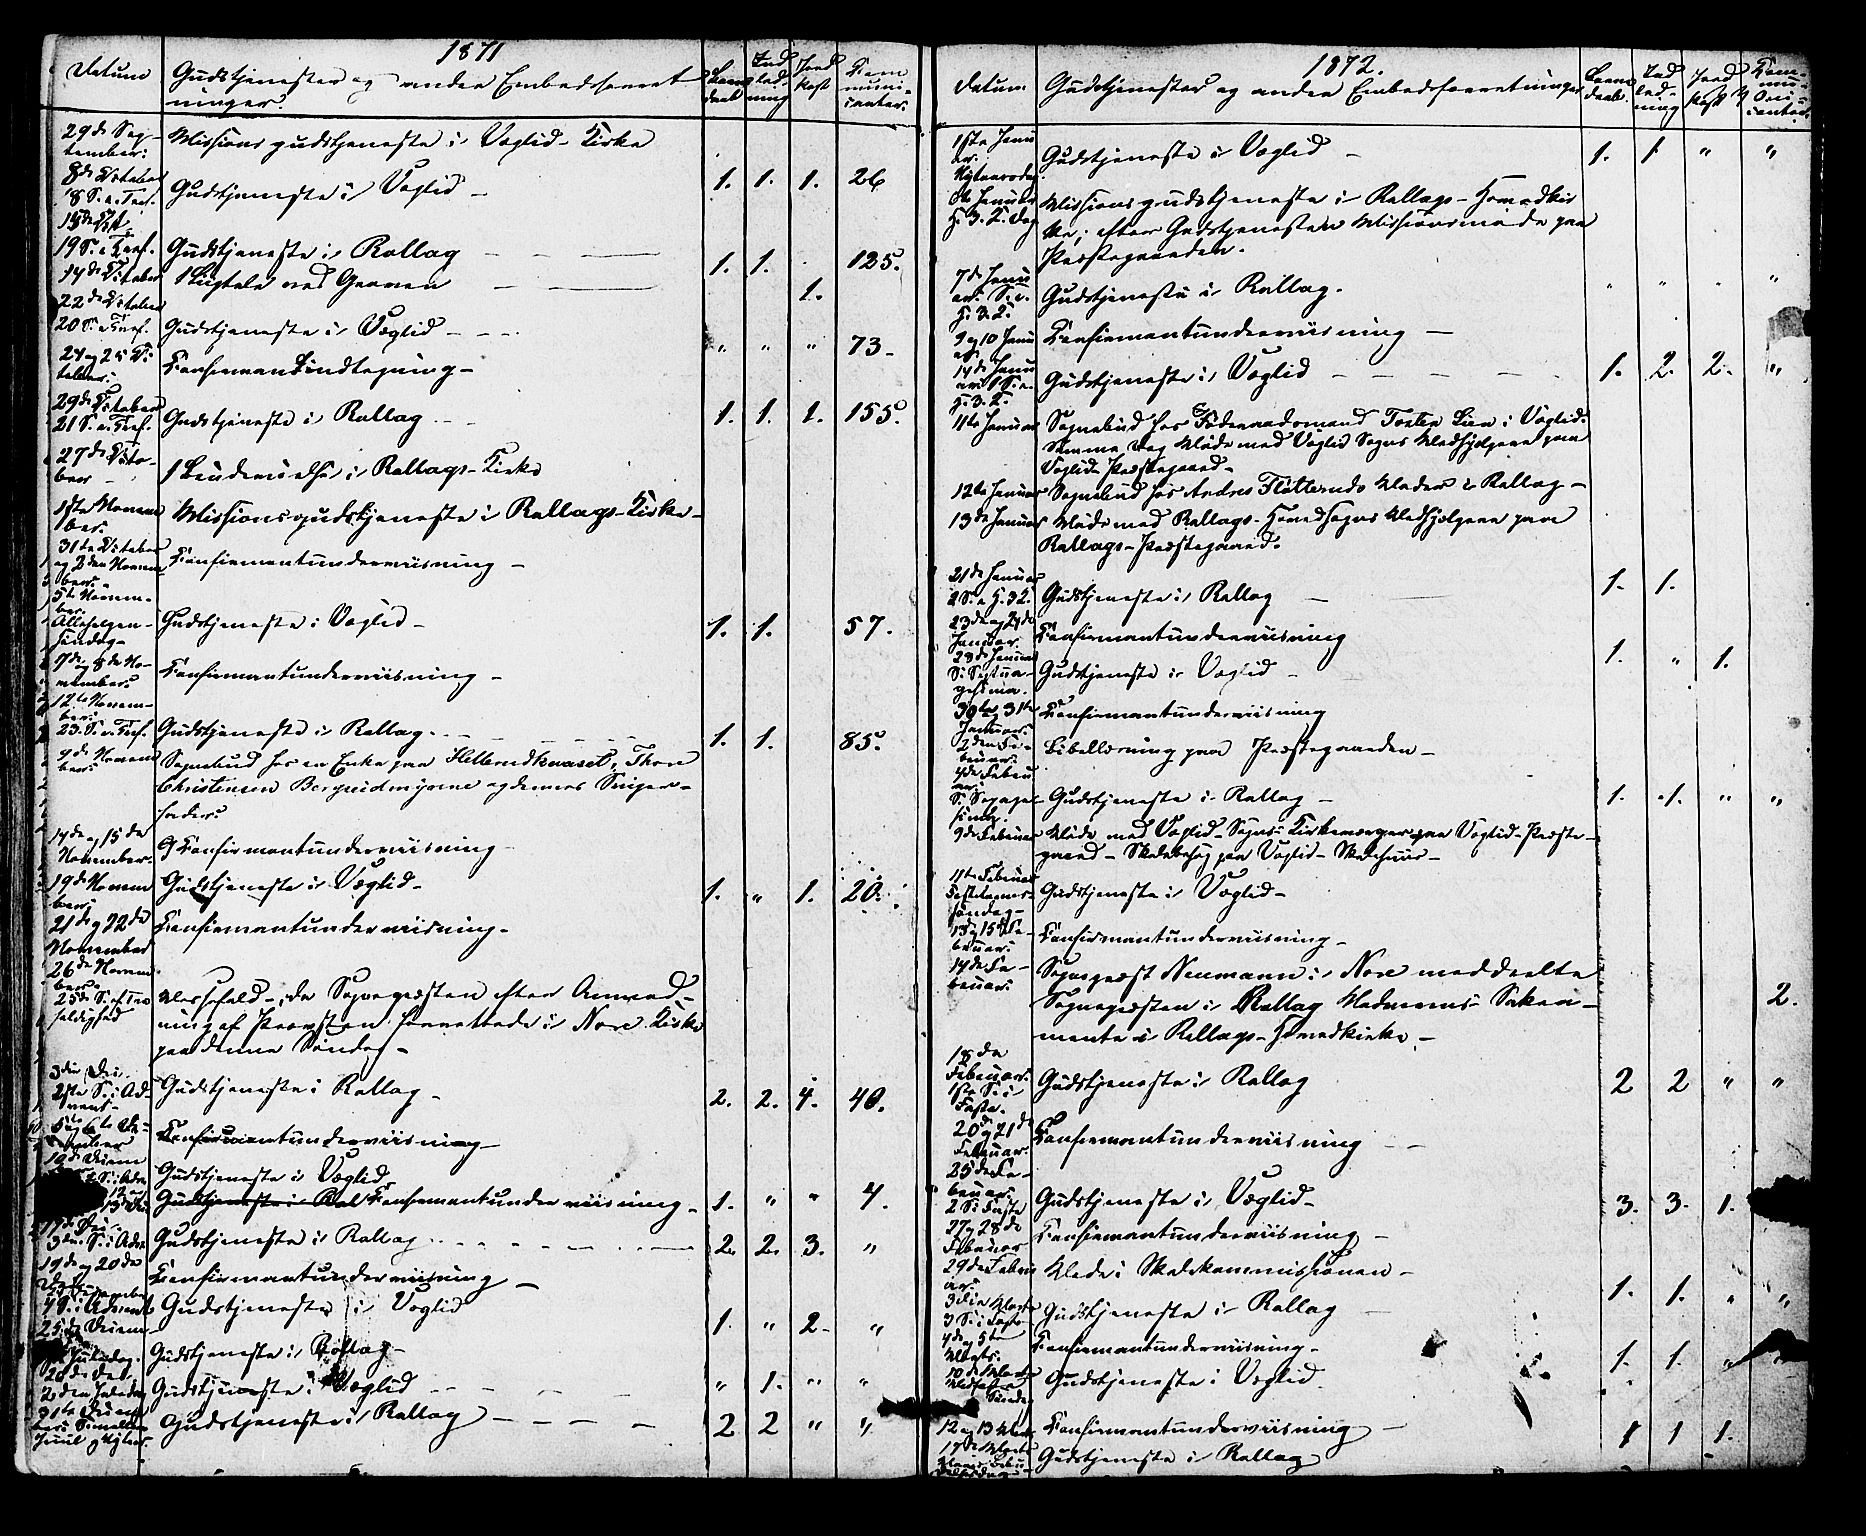 1871
Datum Gudstjenester og andre Embedsforret
ninger.
Barne
daab Ind
led-
ning Jord
kast Com
muni-
canter.
29de Sep-
tember: Missionsgudstjeneste i Veglid-Kirke
8de October
18 S. e. Tref. Gudstjeneste i Veglid - 1. 1. 1. 26
15de Oct.
19 S. e. Tref. Gudstjeneste i Rollag 1. 1. 135.
14de October 1 Ligtale ved Graven 1.
22de October
20 S. e. Tref. Gudstjeneste i Veglid " " " 73-
24 og 25 Oc-
tober: Confirmantindtegning-
29de October
21 S. e. Tref. Gudstjeneste i Rollag 1. 1. 1. 155.
27de Octo-
ber - 1 Brudevielse i Rollags-Kirke
1ste Novem
ber. Missionsgudstjeneste i Rollags-Kirke-
31te October
og 2den Novem
ber. Confirmantunderviisning -
5te Novem-
ber.
Allehelgen-
søndag- Gudstjeneste i Veglid- 1. 1. 57.
7de og 8de No-
vember: Confirmantunderviisning -
12te Novem-
ber:
23. S. e. Tref. Gudstjeneste i Rollag. 1. 1. 85.
9de Novem
ber: Sognebud hos en Enke paa Helleruddkaaset, Thore
Christensen Bergeidmyrene og dennes Sviger-
fader:
14de og 15de
November. Confirmantunderviisning
19de Novem
ber: Gudstjeneste i Veglid- 1. " 1. 20.
21de og 22de
November Confirmantunderviisning-
26de Novem-
ber.
25de S. ef. Tre
foldighed Messefald-, da Sognepresten efter Anmod-
ning af Provsten forrettede i Nore Kirke
paa denne Søndag-
3die Dec.
1ste S. i Ad-
vent- Gudstjeneste i Rollag - 2. 2. 4. 40.
5te og 6te De-
cember Confirmantunderviisning
10de Decem
2 S. i Adv. Gudstjeneste i Veglid
Gudstjeneste i Rol Confirmantunderviisning - 1. " " 4.
17de Dec.
3die S. i Adv. Gudstjeneste i Rollag 2. 2. 3. "
19de og 20de
Confirmantunderviisning -
4 S. i Advent Gudstjeneste i Veglid 1. " 2- "
25de Decem-
Juledag. Gudstjeneste i Rollag-
26de Dec.
2den Juledag Gudstjeneste i Veglid " 1. " "
31te Decem
Gudstjeneste i Rollag 2 2 " "
1872.
Datum Gudstjenester og andre Embedsforretninger
Barne
daab. Ind
led-
ning Jord
kast Com-
mu-
ni-
canter
1ste Janu
ar.
Nytaarsdag. Gudstjeneste i Veglid - 1. 1 " "
6te Januar
H. 3. K. Dag Missionsgudstjeneste i Rollags-Hovedkir
ke; efter Gudstjenesten Missionsmøde paa
Præstegaarden.
7de Janu
ar. S. e.
H. 3. K. Gudstjeneste i Rollag. " " " "
9 og 10 Janu
ar Confirmantunderviisning -
14de Janu
ar 1 S. e.
H. 3. K. Gudstjeneste i Veglid 1. 2. 2. "
11te Januar Sognebud hos Føderaadsmand Torsten Lien i Veglid.
Samme Dag Møde med Veglid Sogns Medhjælpere paa
Veglid-Præstegaard-
12te Januar Sognebud hos Anders Fløtterud i Rollag-
13de Januar Møde med Rollags-Hovedsogns Medhjælpere paa
Rollags-Præstegaard.
21de Januar
2 S. e. H. 3 K. Gudstjeneste i Rollag 1. 1.
23de og 24de
Januar. Confirmantunderviisning
28de Januar
S: Septua-
gesima. Gudstjeneste i Veglid - 1. " 1.
30te og 31te
Januar. Confirmantunderviisning
2den Fe-
bruar: Bibellæsning paa Præstegaarden-
4de Febru
ar:
Gudstjeneste i Rollag - 1. 1. " "
9de Februar Møde med Veglid-Sogns Kirkeværger paa Veglid-Præste-
gaard- Skolebesøg paa Veglid-Skolehuus-
11te Februar
Fastelavns-
søndag- Gudstjeneste i Veglid-
13 og 15 Fe-
bruar: Confirmantunderviisning-
14de Fe-
bruar: Sognepræst Neumann i Nore meddeelte
Sognepresten i Rollag Nadverens Sakra-
mente i Rollags-Hovedkirke- 2.
18de
Februar.
1ste S. i
Faste. Gudstjeneste i Rollag 2 2 " "
20de og 21de
Februar. Confirmantunderviisning -
25de Fe-
bruar:
2 S. i Faste Gudstjeneste i Veglid- 3. 3. 1.
27 og 28de
Februar Confirmantunderviisning -
29de Febru
ar. Møde i Skolekommissionen-
3die Marts
3 S. i Faste Gudstjeneste i Rollag 1. 1. " "
4de og 5te
Marts. Confirmantunderviisning-
10de Marts
Midfaste
Søndag Gudstjeneste i Veglid 1. 1. " "
12 og 13 Marts Confirmantunderviisning
17de Marts
Gudstjeneste i Rollag 1 1 1.